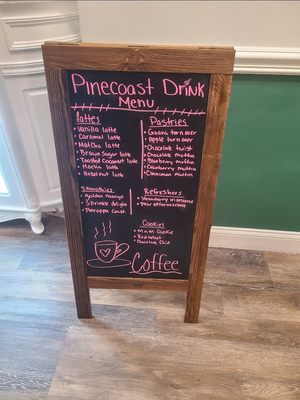 Pinecoast Drink
Menu
lattes
• Vanilla latte
• Caramel latte
• Matcha latte
• Brown Sugar latte
• Toasted Coconut latte
• Mocha latte
• Hazelnut latte
Pastries
• Guava turn over
• Apple turn over
• Chocolate twist
• Chocolate muffin
• Blueberry muffin
• Cranberry muffin
• Cinnamon muffin
Smoothies
• Golden mango
• Sprinkle delight
• Pineapple
Refreshers
• Strawberry
• pear
Cookies
• M&M Cookie
• Chocolate Chip
Coffee